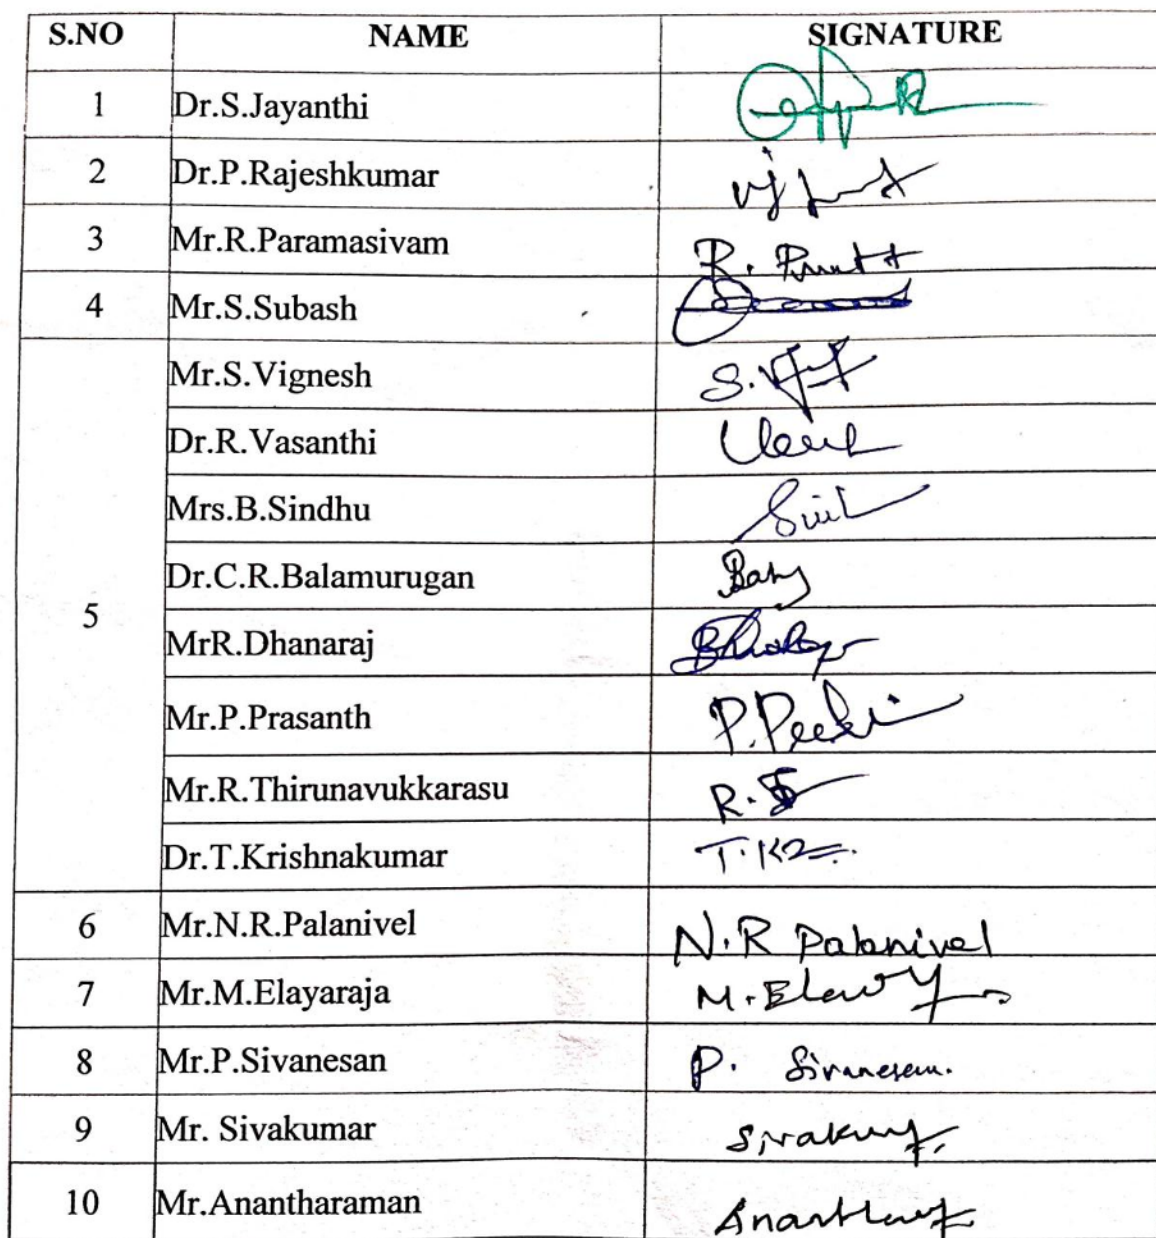 S.NO NAME SIGNATURE
1 Dr.S.Jayanthi
2 Dr.P.Rajeshkumar
3 Mr.R.Paramasivam R.
4 Mr.S.Subash
Mr.S.Vignesh S.
Dr.R.Vasanthi
Mrs.B.Sindhu
Dr.C.R.Balamurugan
5 MrR.Dhanaraj
Mr.P.Prasanth P.
Mr.R.Thirunavukkarasu R.
Dr.T.Krishnakumar T.
6 Mr.N.R.Palanivel N.R Palanivel
7 Mr.M.Elayaraja M.
8 Mr.P.Sivanesan P. Sivanesan.
9 Mr. Sivakumar
10 Mr.Anantharaman